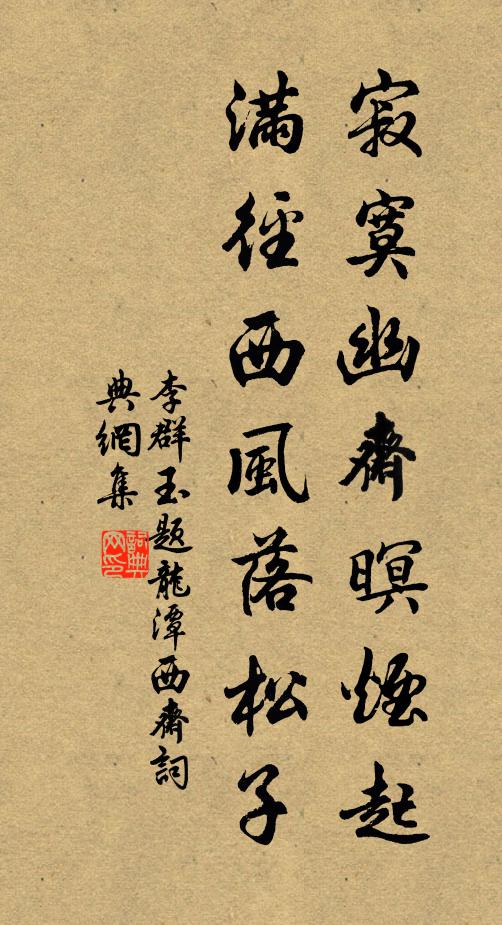 寂寞幽齋暝煙起
滿徑西風落松子
李群玉题龍潭西齋詞
典網集
詞典网印